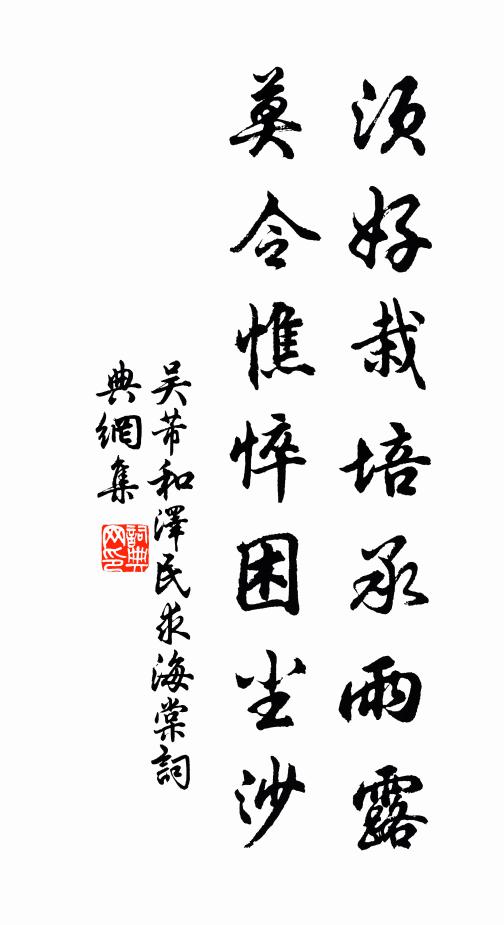 須好栽培承雨露
莫令憔悴困尘沙
吴芾和澤民求海棠詞
典網集
詞典网印